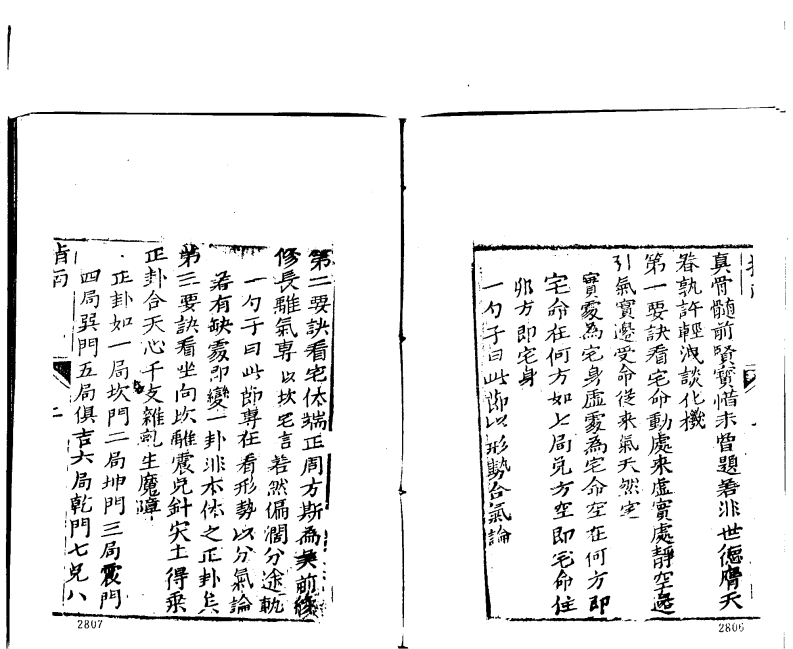 真骨髓前賢寶惜未曾題若非世德膺天
眷孰許輕洩談化機
第一要訣看宅命動處來虛實處靜空邊
引氣實邊受命從來氣天然定
實處為宅身虛處為宅命空在何方即
宅命在何方如七局兌方空即宅命住
卯方即宅身
一勺子曰此節以形勢合氣論
2806
第二要訣看宅体端正周方斯為美前後
修長離氣專以坎宅言若然偏濶分途軌
一勺子曰此節專在看形勢以分氣論
若有缺處即變一卦非本体之正卦矣
第三要訣看坐向坎離震兌針灾土得乘
正卦合天心千支雜亂生魔障
正卦如一局坎門二局坤門三局震門
四局巽門五局俱吉六局乾門七兌八
指南
二
2807